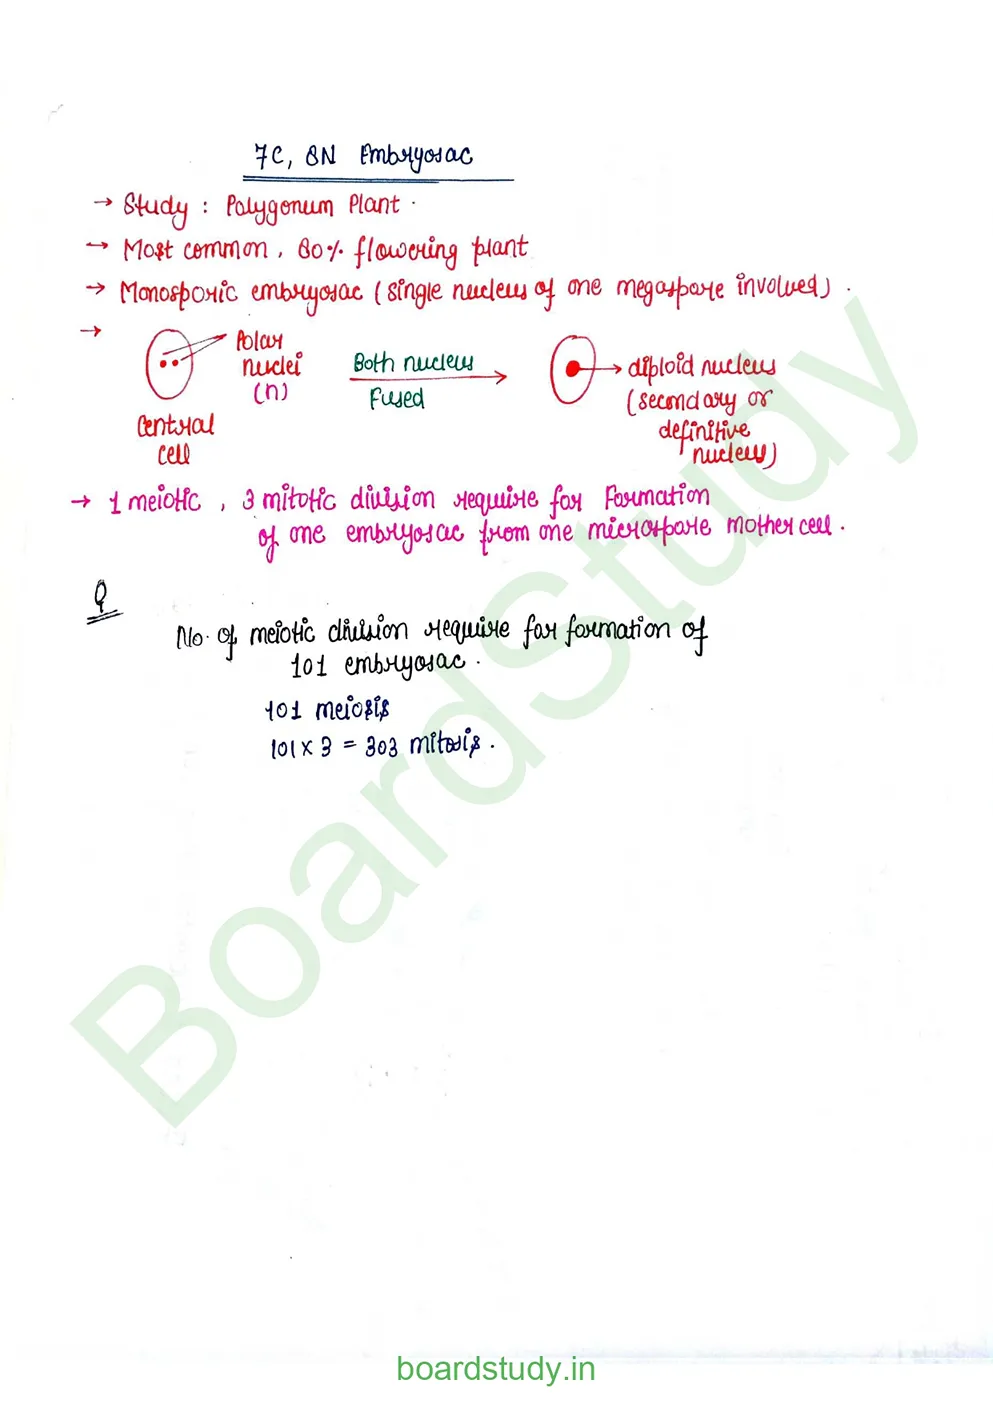 7C, 8N Embryosac
→ Study : Polygonum Plant.
→ Most common, 80% flowering plant
→ Monosporic embryosac (single nucleus of one megaspore involved).
→
Polar
nuclei
(n)
Central
cell
Both nucleus
Fused
diploid nucleus
(secondary or
definitive
nucleus)
→ 1 meiotic, 3 mitotic division require for Formation
of one embryosac from one microspore mother cell.
Q
No. of meiotic division require for formation of
101 embryosac.
101 meiosis
101 x 3 = 303 mitosis.
BoardStudy
boardstudy.in